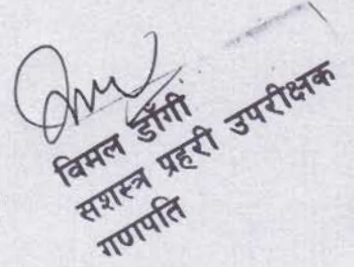 विमल डाँगी
सशस्त्र प्रहरी उपरीक्षक
गणपति